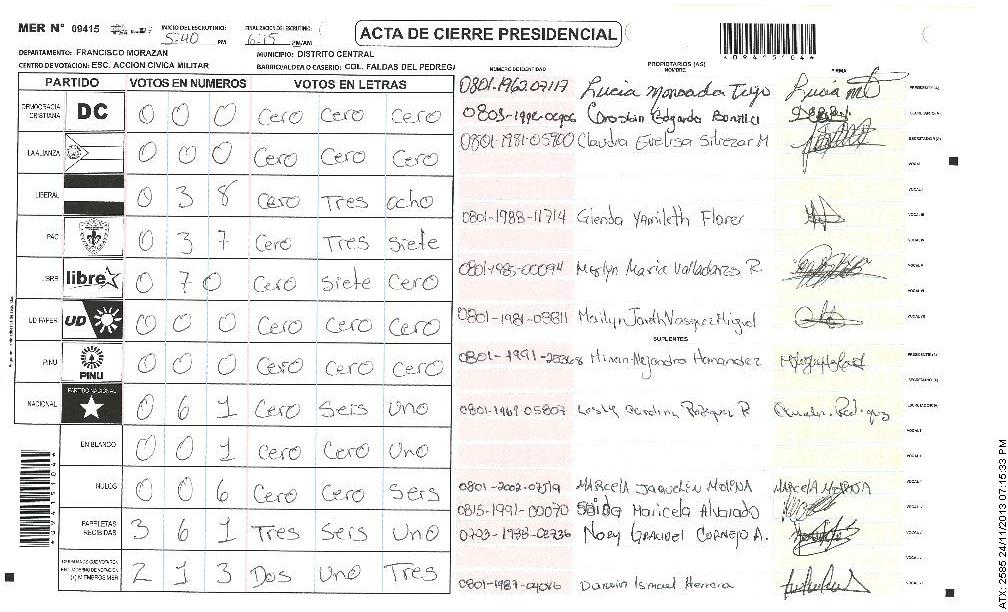 MER N° 09415 INICIO DEL ESCRUTINIO: 5:40 PM FINALIZACION DEL ESCRUTINIO: 6:15 PM/AM
ACTA DE CIERRE PRESIDENCIAL
*09415104*
DEPARTAMENTO: FRANCISCO MORAZAN MUNICIPIO: DISTRITO CENTRAL
CENTRO DE VOTACION: ESC. ACCION CIVICA MILITAR BARRIO/ALDEA O CASERIO: COL. FALDAS DEL PEDREG
PARTIDO VOTOS EN NUMEROS VOTOS EN LETRAS
DEMOCRACIA CRISTIANA DC 0 0 0 Cero Cero Cero
LA ALIANZA 0 0 0 Cero Cero Cero
LIBERAL 0 3 8 Cero Tres ocho
PAC 0 3 7 Cero Tres Siete
LIBRE libre 0 7 0 Cero Siete Cero
UD FAPER UD 0 0 0 Cero Cero Cero
PINU PINU 0 0 0 Cero Cero Cero
NACIONAL PARTIDO NACIONAL 0 6 1 Cero Seis Uno
EN BLANCO 0 0 1 Cero Cero Uno
NULOS 0 0 6 Cero Cero Seis
PAPELETAS RECIBIDAS 3 6 1 Tres Seis Uno
2 1 3 Dos Uno Tres
NUMERO DE IDENTIDAD PROPIETARIOS (AS) NOMBRE FIRMA
0801-1962-07117 Lucia Moncada PRESIDENTE (A)
Edgardo Bonilla SECRETARIO (A)
0801-1981-05900 Claudia Evelisa M ESCRUTADOR (A)
VOCAL I
VOCAL II
0801-1988-11714 Glenda Yamileth Flores VOCAL III
VOCAL IV
0801-1985-00094 Merlyn Maria Valladares R. VOCAL V
VOCAL VI
0801-1981-03811 Marilyn Vasquez VOCAL VII
SUPLENTES
Alejandra Hernandez PRESIDENTE (A)
SECRETARIO (A)
0801-1969-05807 Lesly Carolina Rodriguez R ESCRUTADOR (A)
VOCAL I
VOCAL II
0801-2002-07519 MARCELA JAQUELIN MOLINA MARCELA MOLINA
0815-1991-00070 Maricela Alvarado
0703-1988-02736 Nory CORNEJO A.
0801-1987-04086 Darwin Ismael Herrera
*09415104*
ATX: 2585 24/11/2013 07:15:33 PM